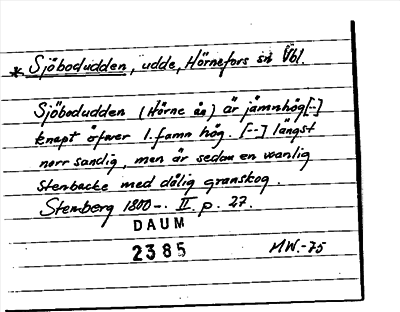 * Sjöbodudden, udde, Hörnefors sn Vbl.
Sjöbodudden (Hörne ån) är jämnhög [--]
knapt öfwer 1. famn hög. [--] längst
norr sandig, men är sedan en wanlig
stenbacke med dålig granskog.
Stenberg 1800-. II. p. 27.
DAUM
2385 MW.-75